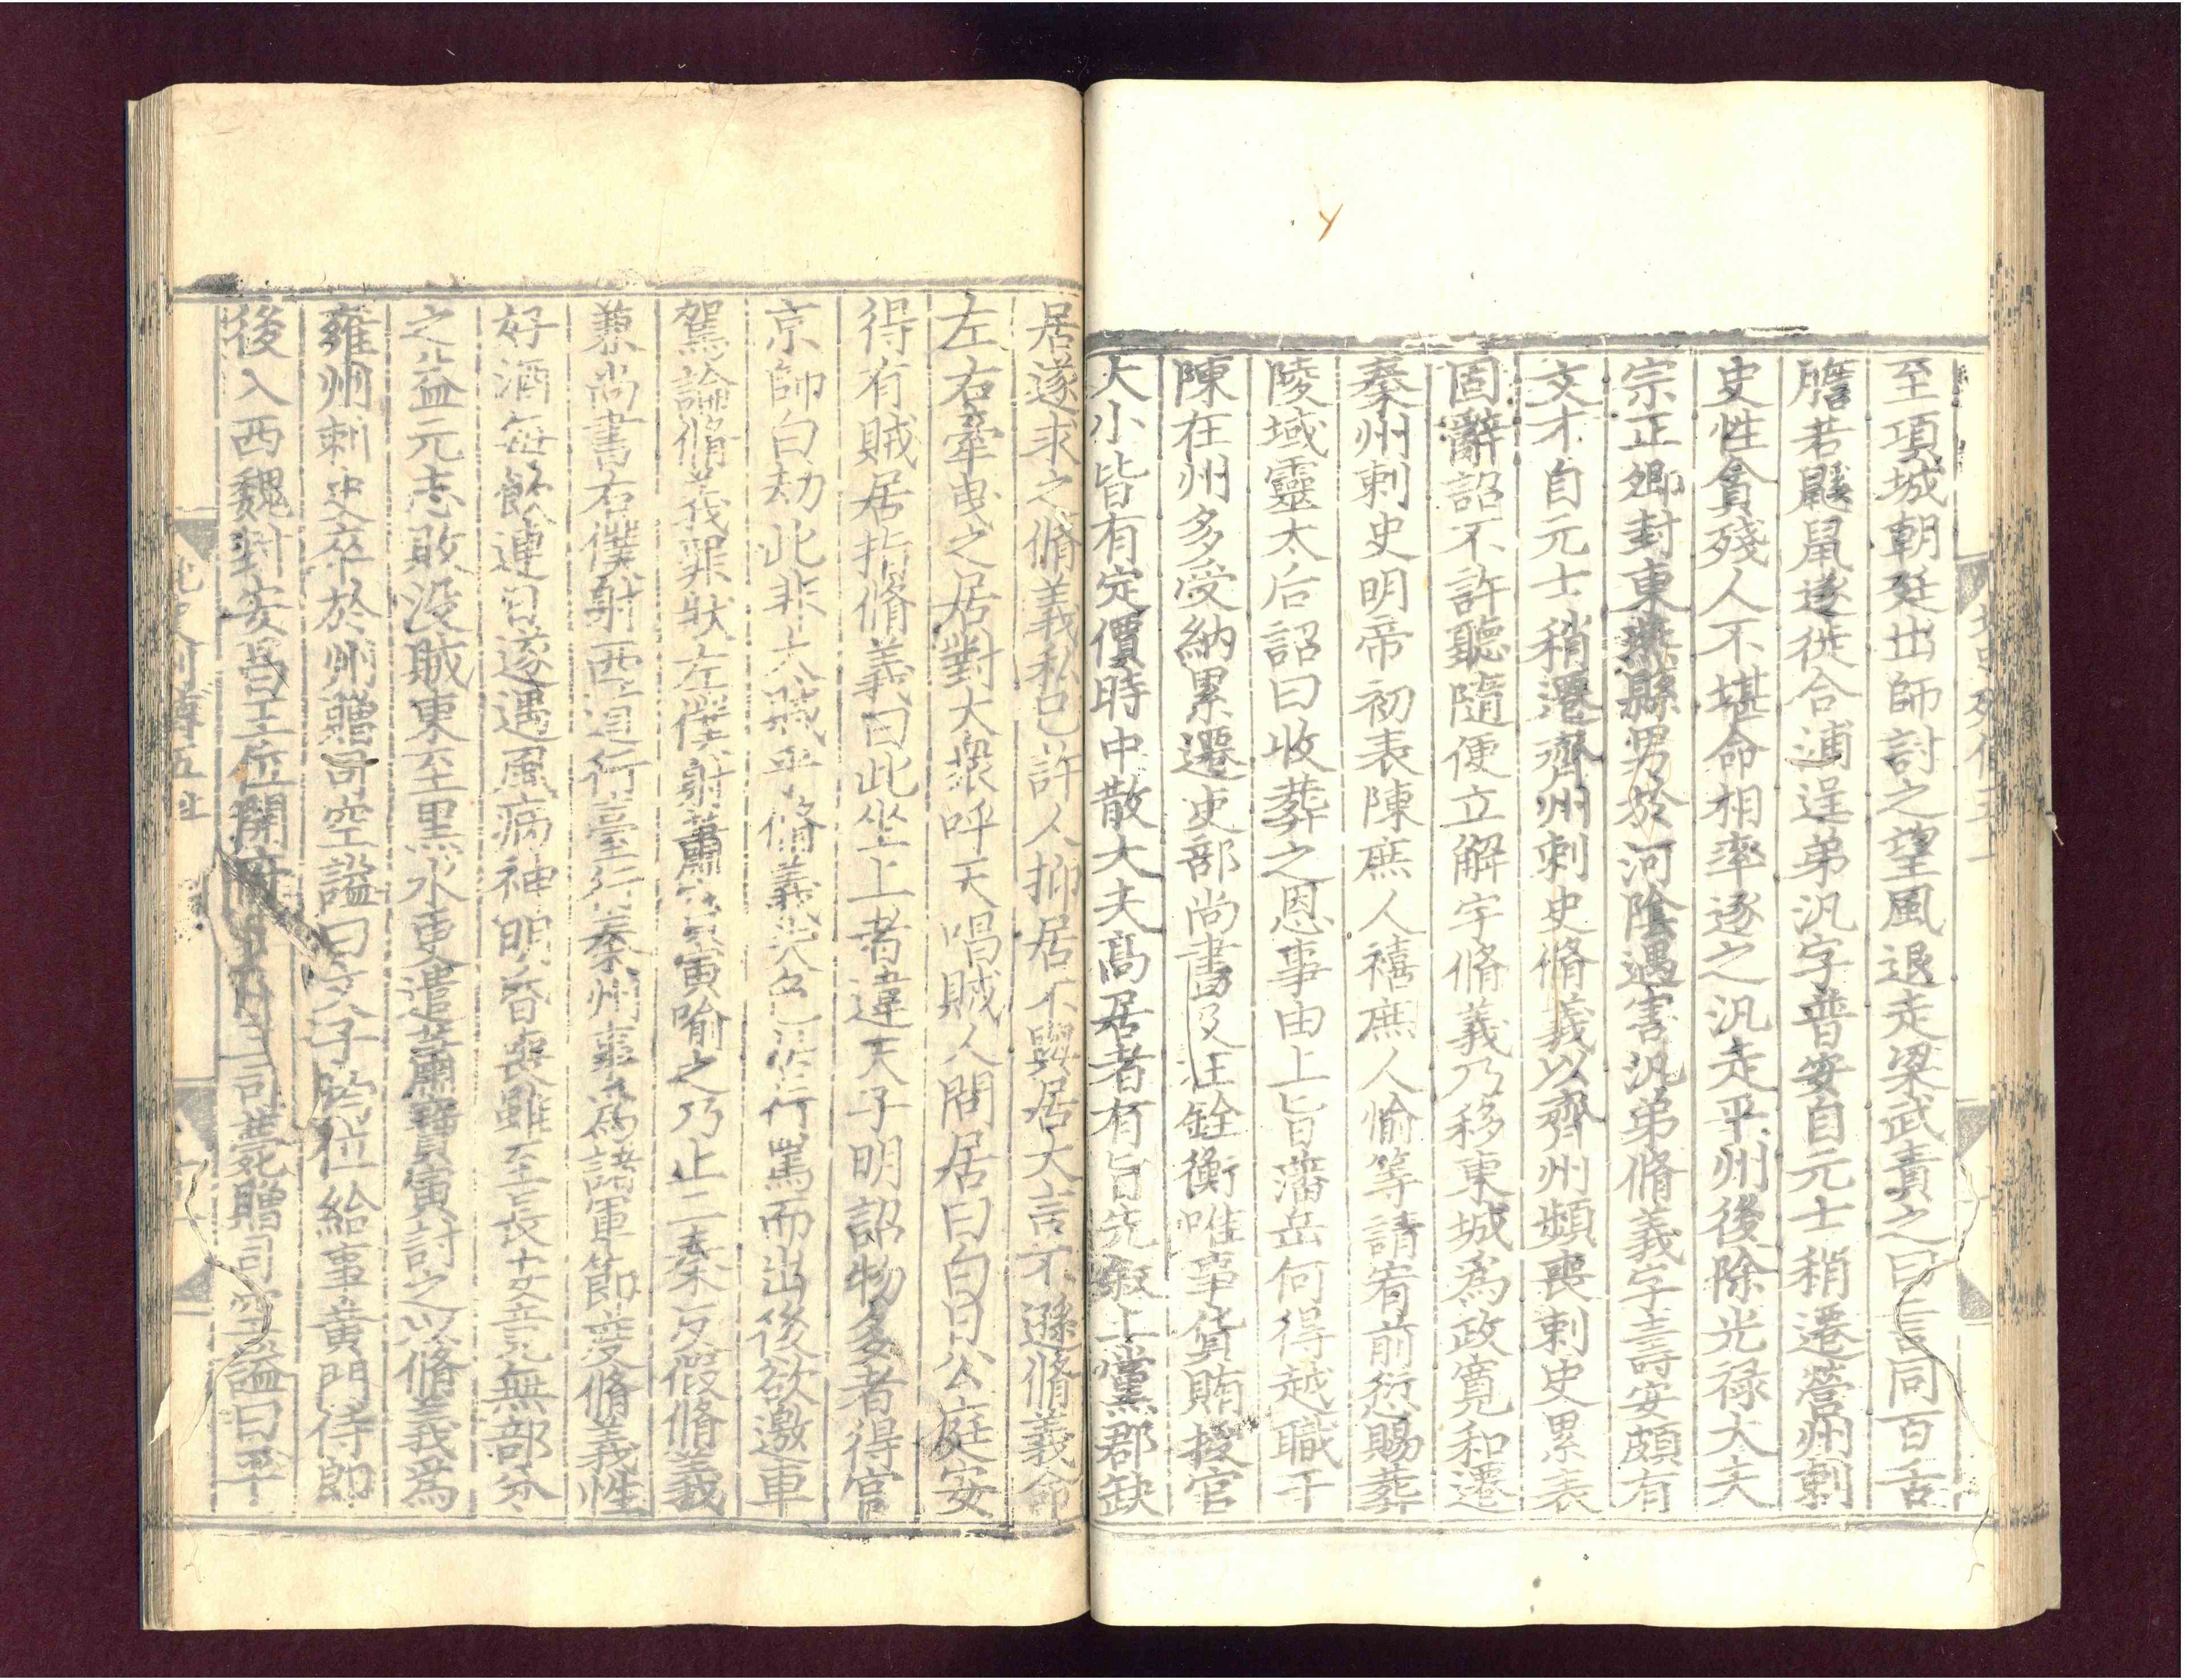 至項城朝廷出師討之望風退走梁武責之曰言同百舌
膽若鼷鼠遂徙合浦逞弟汎字普安自元士稍遷營州刺
史性貪殘人不堪命相率逐之汎走平州後除光祿大夫
宗正卿封東燕縣男於河陰遇害汎弟脩義字壽安頗有
文才自元士稍遷齊州刺史脩義以齊州頻喪刺史累表
固辭詔不許聽隨便立解宇脩義乃移東城爲政寬和遷
秦州刺史明帝初表陳庶人禧庶人愉等請宥前愆賜葬
陵域靈太后詔曰收葬之恩事由上旨藩岳何得越職干
陳在州多受納累遷吏部尚書及在銓衡唯事貨賄授官
大小皆有定價時中散大夫高居者有旨先叙上黨郡缺
居遂求之脩義私已許人抑居不與居大言不遜脩義命
左右牽曳之居對大衆呼天唱賊人問居曰白日公庭安
得有賊居指脩義曰此坐上者違天子明詔物多者得官
京師白劫此非大賊乎脩義失色居行罵而出後欲邀車
駕論脩義罪狀左僕射蕭寶寅喻之乃止二秦反假脩義
兼尚書右僕射西道行臺行秦州事爲諸軍節度脩義性
好酒每飲連日遂遇風病神明昏喪雖至長安竟無部分
之益元志敗沒賊東至黑水更遣蕭寶寅討之以脩義爲
雍州刺史卒於州贈司空謚曰文子均位給事黃門侍郎
後入西魏封安昌王位開府儀同三司薨贈司空謚曰平
北史列傳五